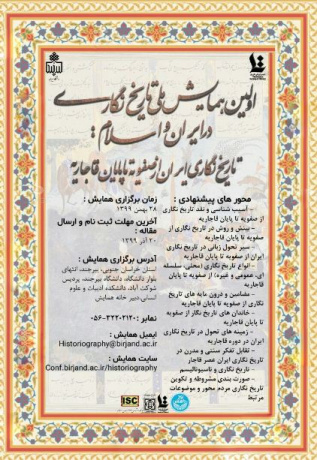 اولین همایش ملی تاریخ نگاری
در ایران و اسلام:
تاریخ نگاری ایران از صفویه تا پایان قاجاریه
محور های پیشنهادی :
- آسیب شناسی و نقد تاریخ نگاری
از صفویه تا پایان قاجاریه
- بینش و روش در تاریخ نگاری از
صفویه تا پایان قاجاریه
- سیر تحول زبانی در تاریخ نگاری
ایران از صفویه تا پایان قاجاریه
- انواع تاریخ نگاری (محلی، سلسله
ای، عمومی و غیره) از صفویه تا پایان
قاجاریه
- مضامین و درون مایه های تاریخ
نگاری از صفویه تا پایان قاجاریه
- خاندان های تاریخ نگار از صفویه
تا قاجاریه
- زمینه های تحول در تاریخ نگاری
ایران در دوره قاجاریه
- تقابل تفکر سنتی و مدرن در
تاریخ نگاری ایران عصر قاجار
- تاریخ نگاری و ناسیونالیسم
- صورت بندی مشروطه و تکوین
تاریخ نگاری مردم محور و موضوعات
مرتبط
زمان برگزاری همایش :
۲۸ بهمن ۱۳۹۹
آخرین مهلت ثبت نام و ارسال
مقاله :
۲۰ آذر ۱۳۹۹
آدرس برگزاری همایش :
استان خراسان جنوبی، بیرجند، انتهای
بلوار دانشگاه، دانشگاه بیرجند، پردیس
شوکت آباد، دانشکده ادبیات و علوم
انسانی دبیر خانه همایش
نمابر : ۳۲۲۰۲۱۲۰-۰۵۶
ایمیل همایش :
Historiography@birjand.ac.ir
سایت همایش :
Conf.birjand.ac.ir/historiography
ISC